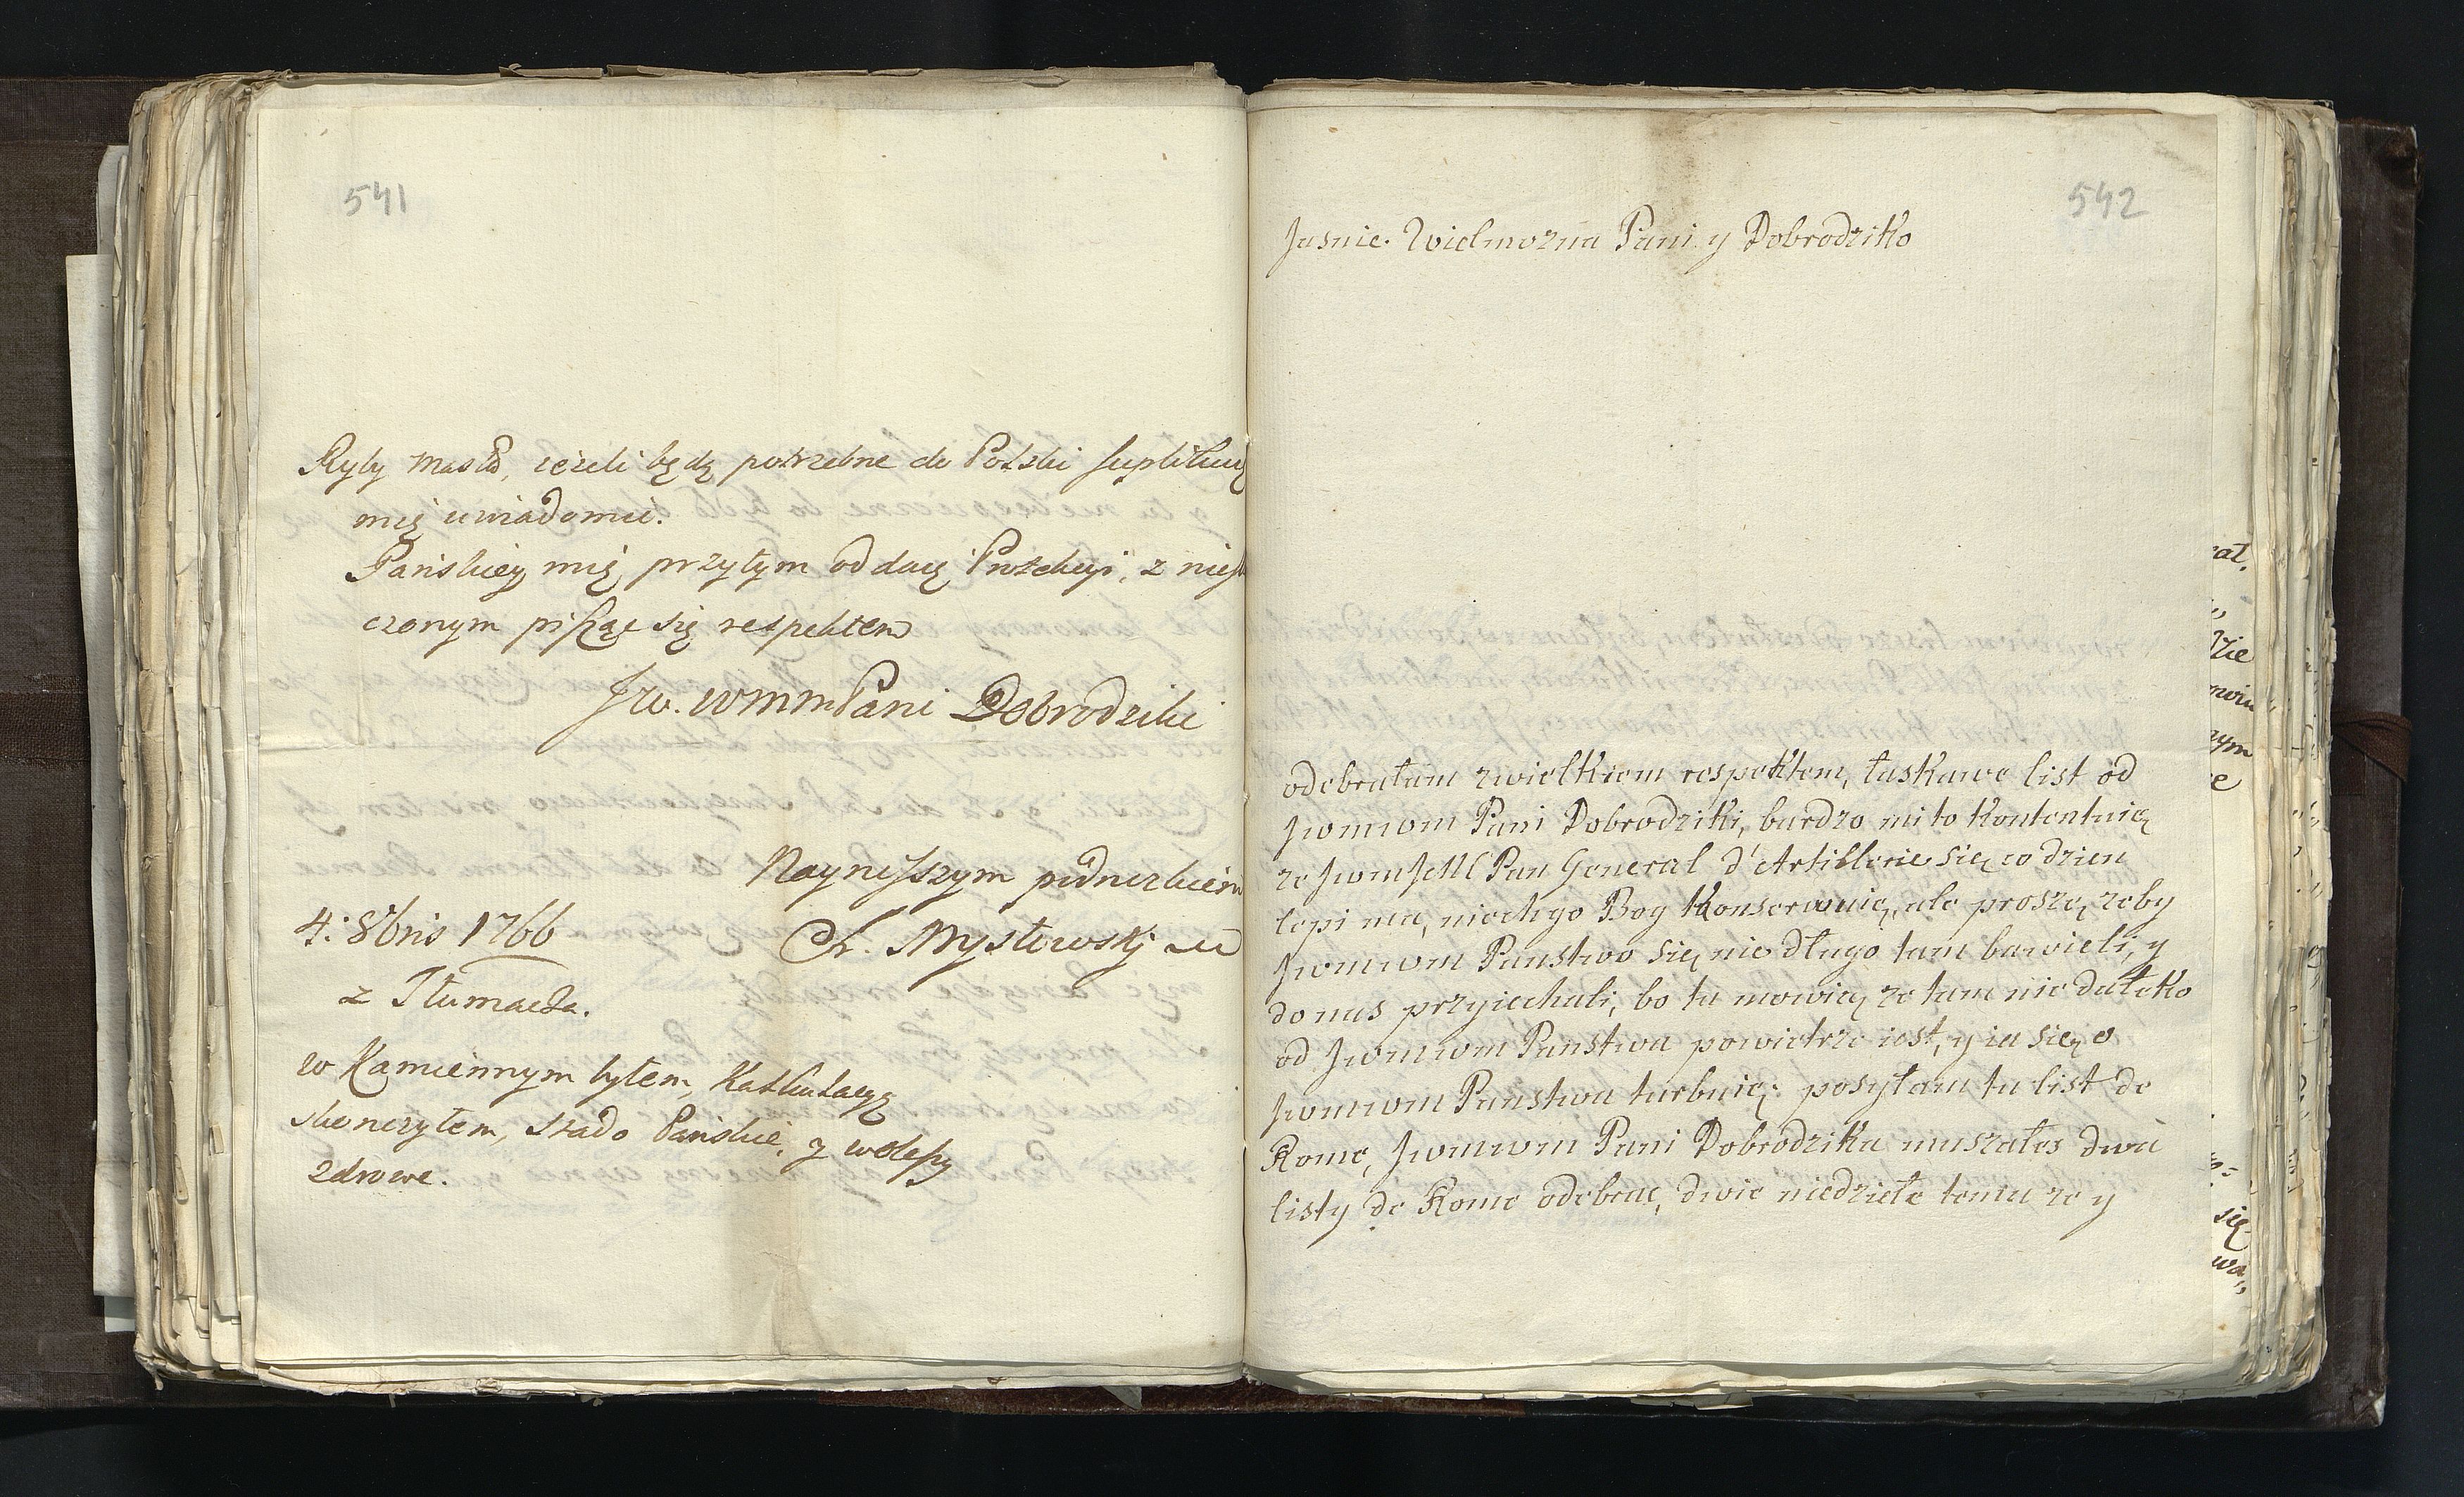 541
Ryby masło, ieżeli będą potrzebne do Polski suplikuię
mię uwiadomić.
Pańskiey mię przytym oddaię Protekcyi, z nie
czonym pisząc się respektem
Jw. wmm Pani Dobrodziki
Nayniższym podnużkiem
4: 8bris 1766
Ch. Mysłowskj
z Tłumacza.
w Kamiennym byłem,
skonczyłem, stado Pańskie, y wolepy
zdrowe.
542
Jasnie Wielmozna Pani y Dobrodziko
odebrałam zwielkiem respektem, łaskawe list od
Jwmwm Pani Dobrodziki, bardzo mi to kontentuię
ze Jwm JMC Pan General d'Artillerie się co dzien
lepi ma, niechgo Bog Konserwuię, ale proszę zeby
Jwmwm Panstwo się nie długo tam bawieli, y
do nas przyiechali, bo tu mowię ze tam nie daleko
od Jwmwm Panstwa powietrze iest, y ia się o
Jwmwm Panstwa turbuię: posyłam tu list de
Rome, Jwmwm Pani Dobrodzika muszałes dwa
listy de Rome odebrac, dwie niedziele temu ze y